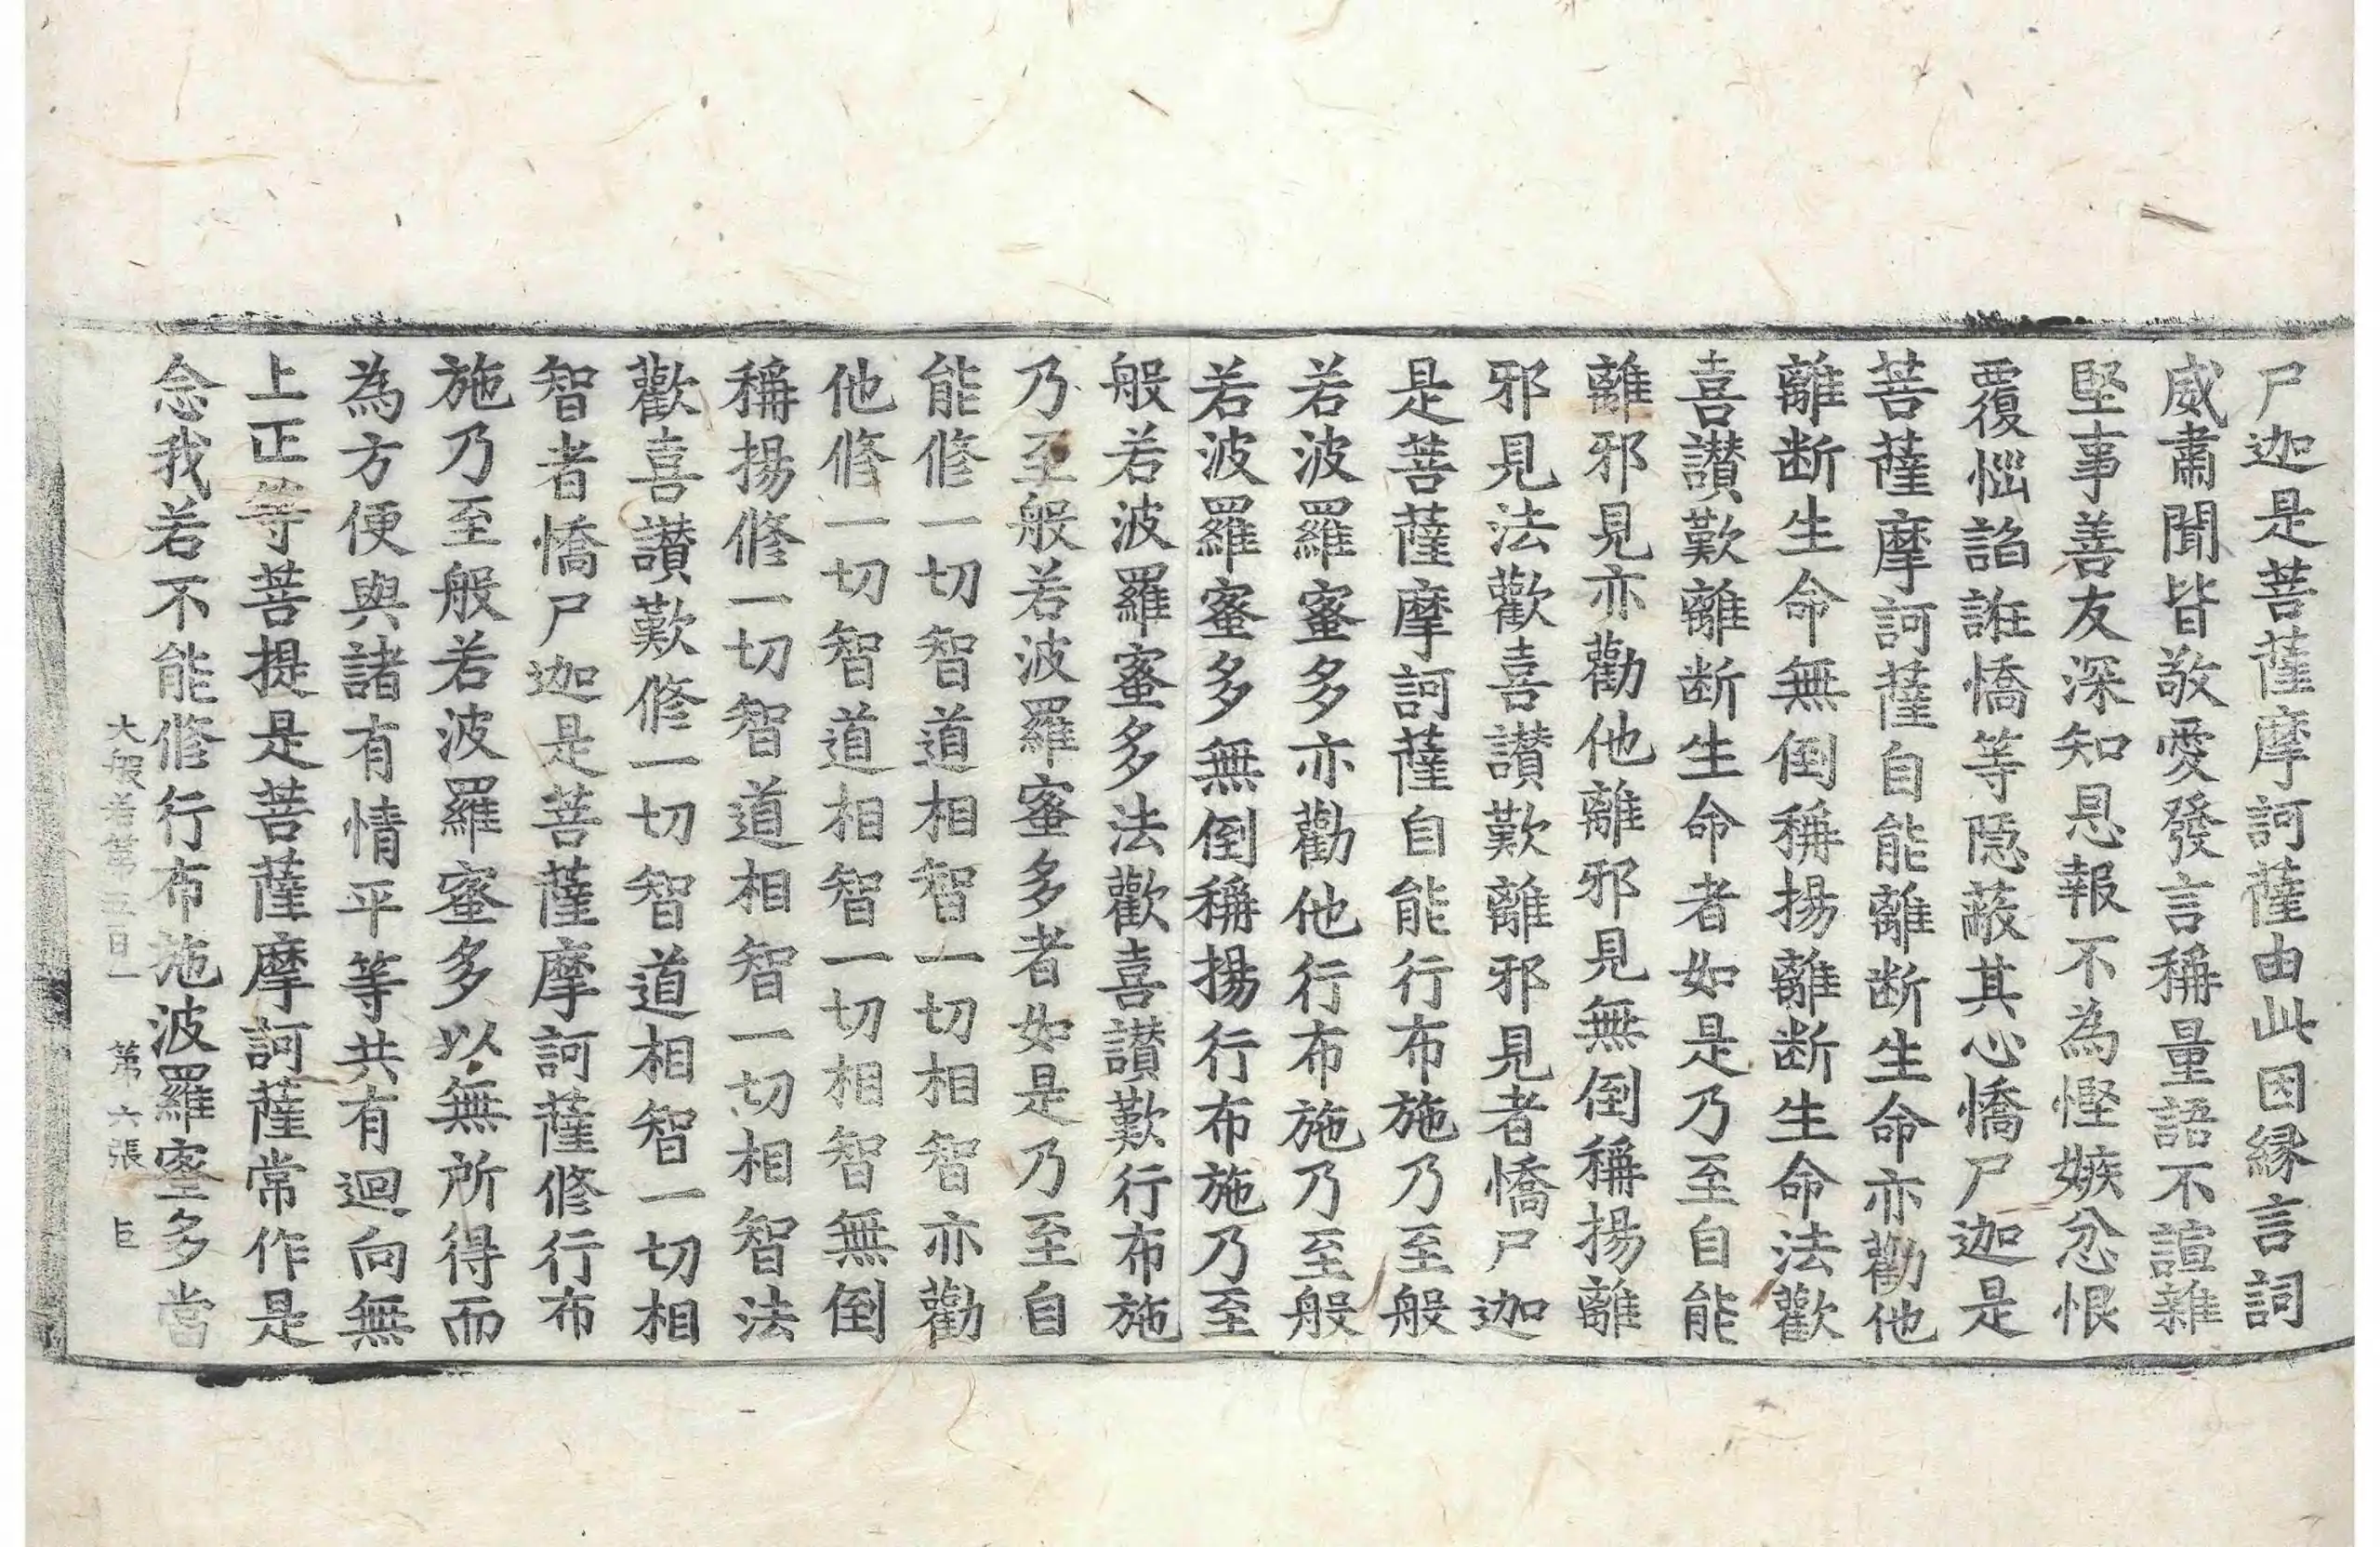 尸迦是菩薩摩訶薩由此因緣言詞
威肅聞皆敬愛發言稱量語不諠雜
堅事善友深知恩報不為慳嫉忿恨
覆惱諂誑憍等隱蔽其心憍尸迦是
菩薩摩訶薩自能離断生命亦勸他
離断生命無倒稱揚離断生命法歡
喜讃歎離断生命者如是乃至自能
離邪見亦勸他離邪見無倒稱揚離
邪見法歡喜讃歎離邪見者憍尸迦
是菩薩摩訶薩自能行布施乃至般
若波羅蜜多亦勸他行布施乃至般
若波羅蜜多無倒稱揚行布施乃至
般若波羅蜜多法歡喜讃歎行布施
乃至般若波羅蜜多者如是乃至自
能修一切智道相智一切相智亦勸
他修一切智道相智一切相智無倒
稱揚修一切智道相智一切相智法
歡喜讃歎修一切智道相智一切相
智者憍尸迦是菩薩摩訶薩修行布
施乃至般若波羅蜜多以無所得而
為方便與諸有情平等共有迴向無
上正等菩提是菩薩摩訶薩常作是
念我若不能修行布施波羅蜜多當
大般若第五百一 第六張 巨